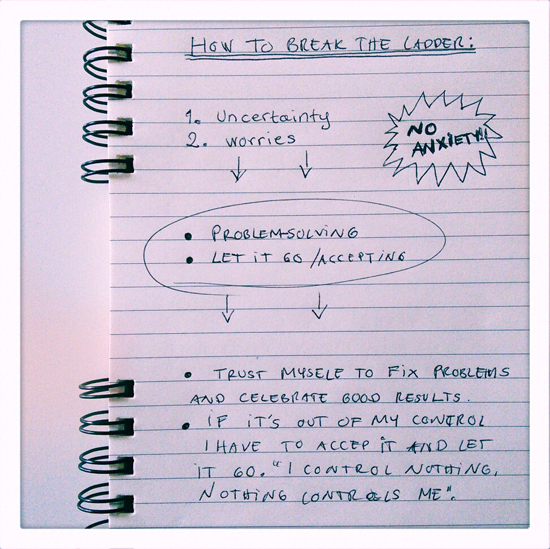 HOW TO BREAK THE LADDER:
1. Uncertainty
2. worries
NO
ANXIETY!!
• PROBLEM-SOLVING
• LET IT GO / ACCEPTING
• TRUST MYSELF TO FIX PROBLEMS
AND CELEBRATE GOOD RESULTS.
• IF IT'S OUT OF MY CONTROL
I HAVE TO ACCEP IT AND LET
IT GO. "I CONTROL NOTHING,
NOTHING CONTROLS ME".